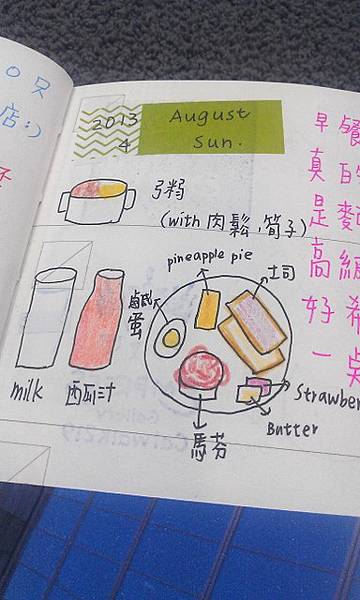 只
店:)
2013
4
August
Sun.
粥
(with 肉鬆,筍子)
pineapple pie
土司
鹹
蛋
milk
西瓜汁
馬芬
Butter
Strawber
早餐
真的
是麵
高級
好希
一點